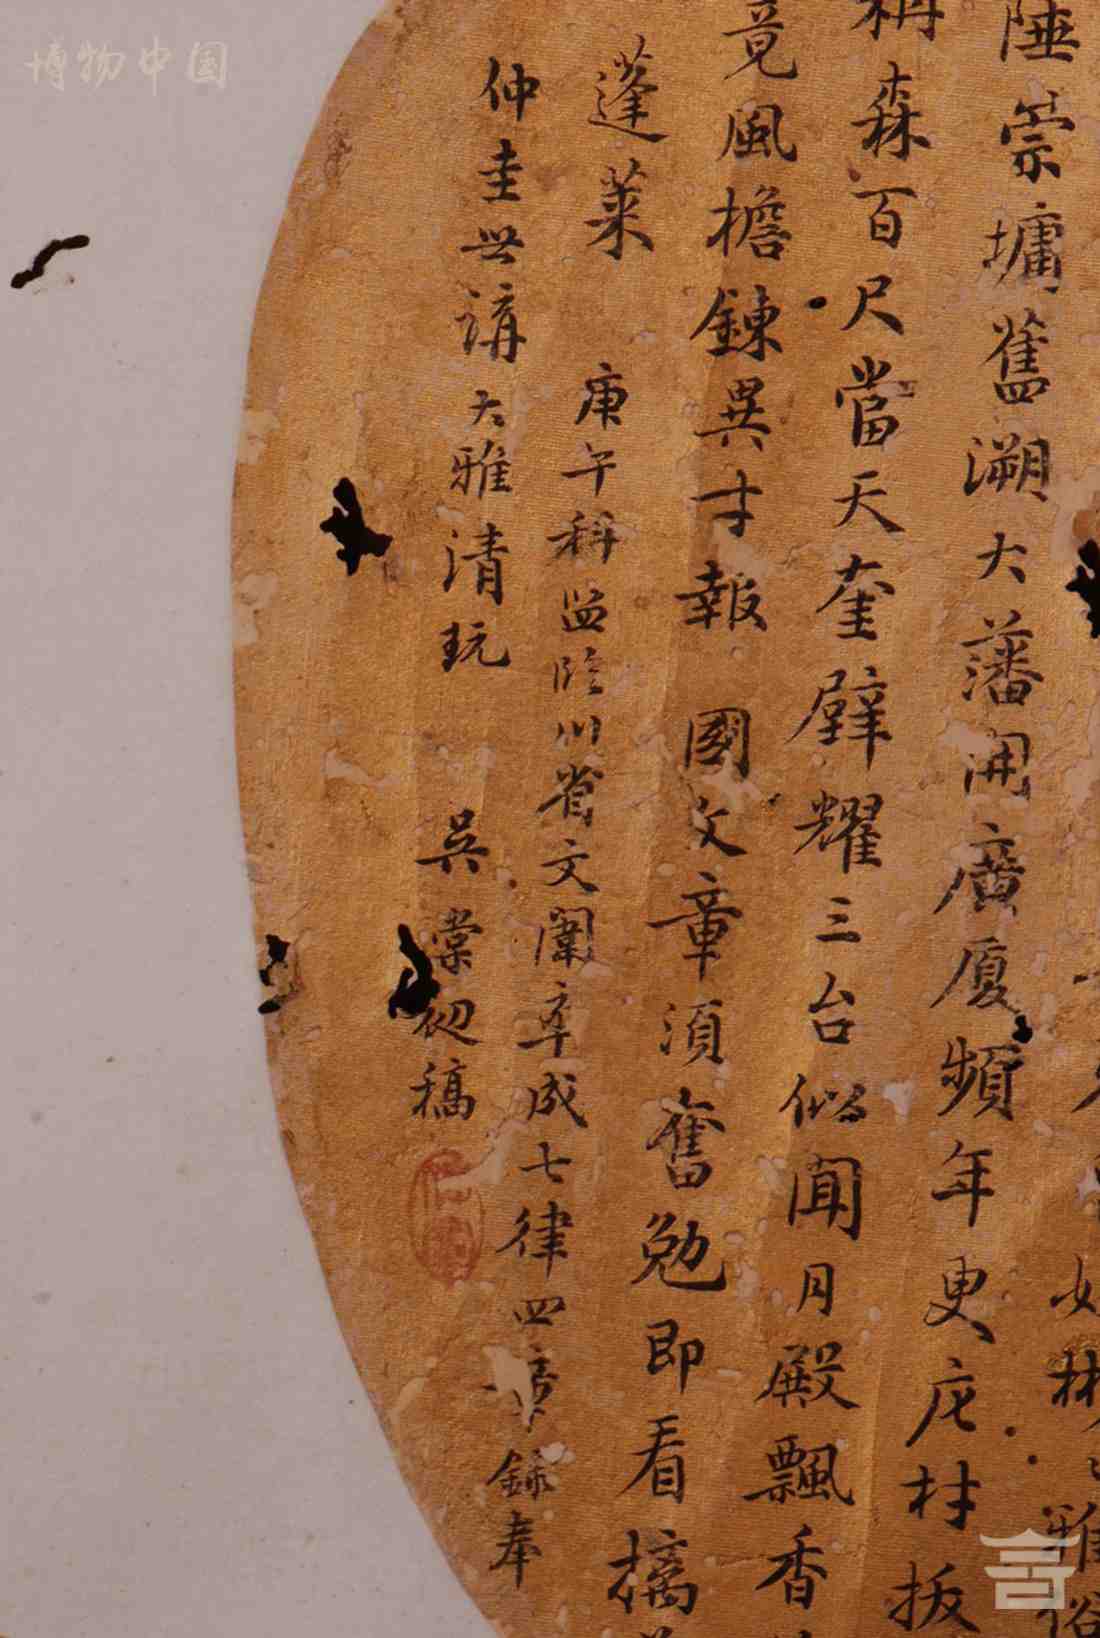 博物中国
陲崇墉舊溯大藩開廣厦頻年更庇材扳
稱森百尺當天奎璧耀三台似聞月殿飄香
竟風檐鍊異才報國文章須奮勉即看摛
蓬萊
庚午科監臨川省文闈卒成七律四章錄奉
仲圭世講大雅清玩
吳棠初稿